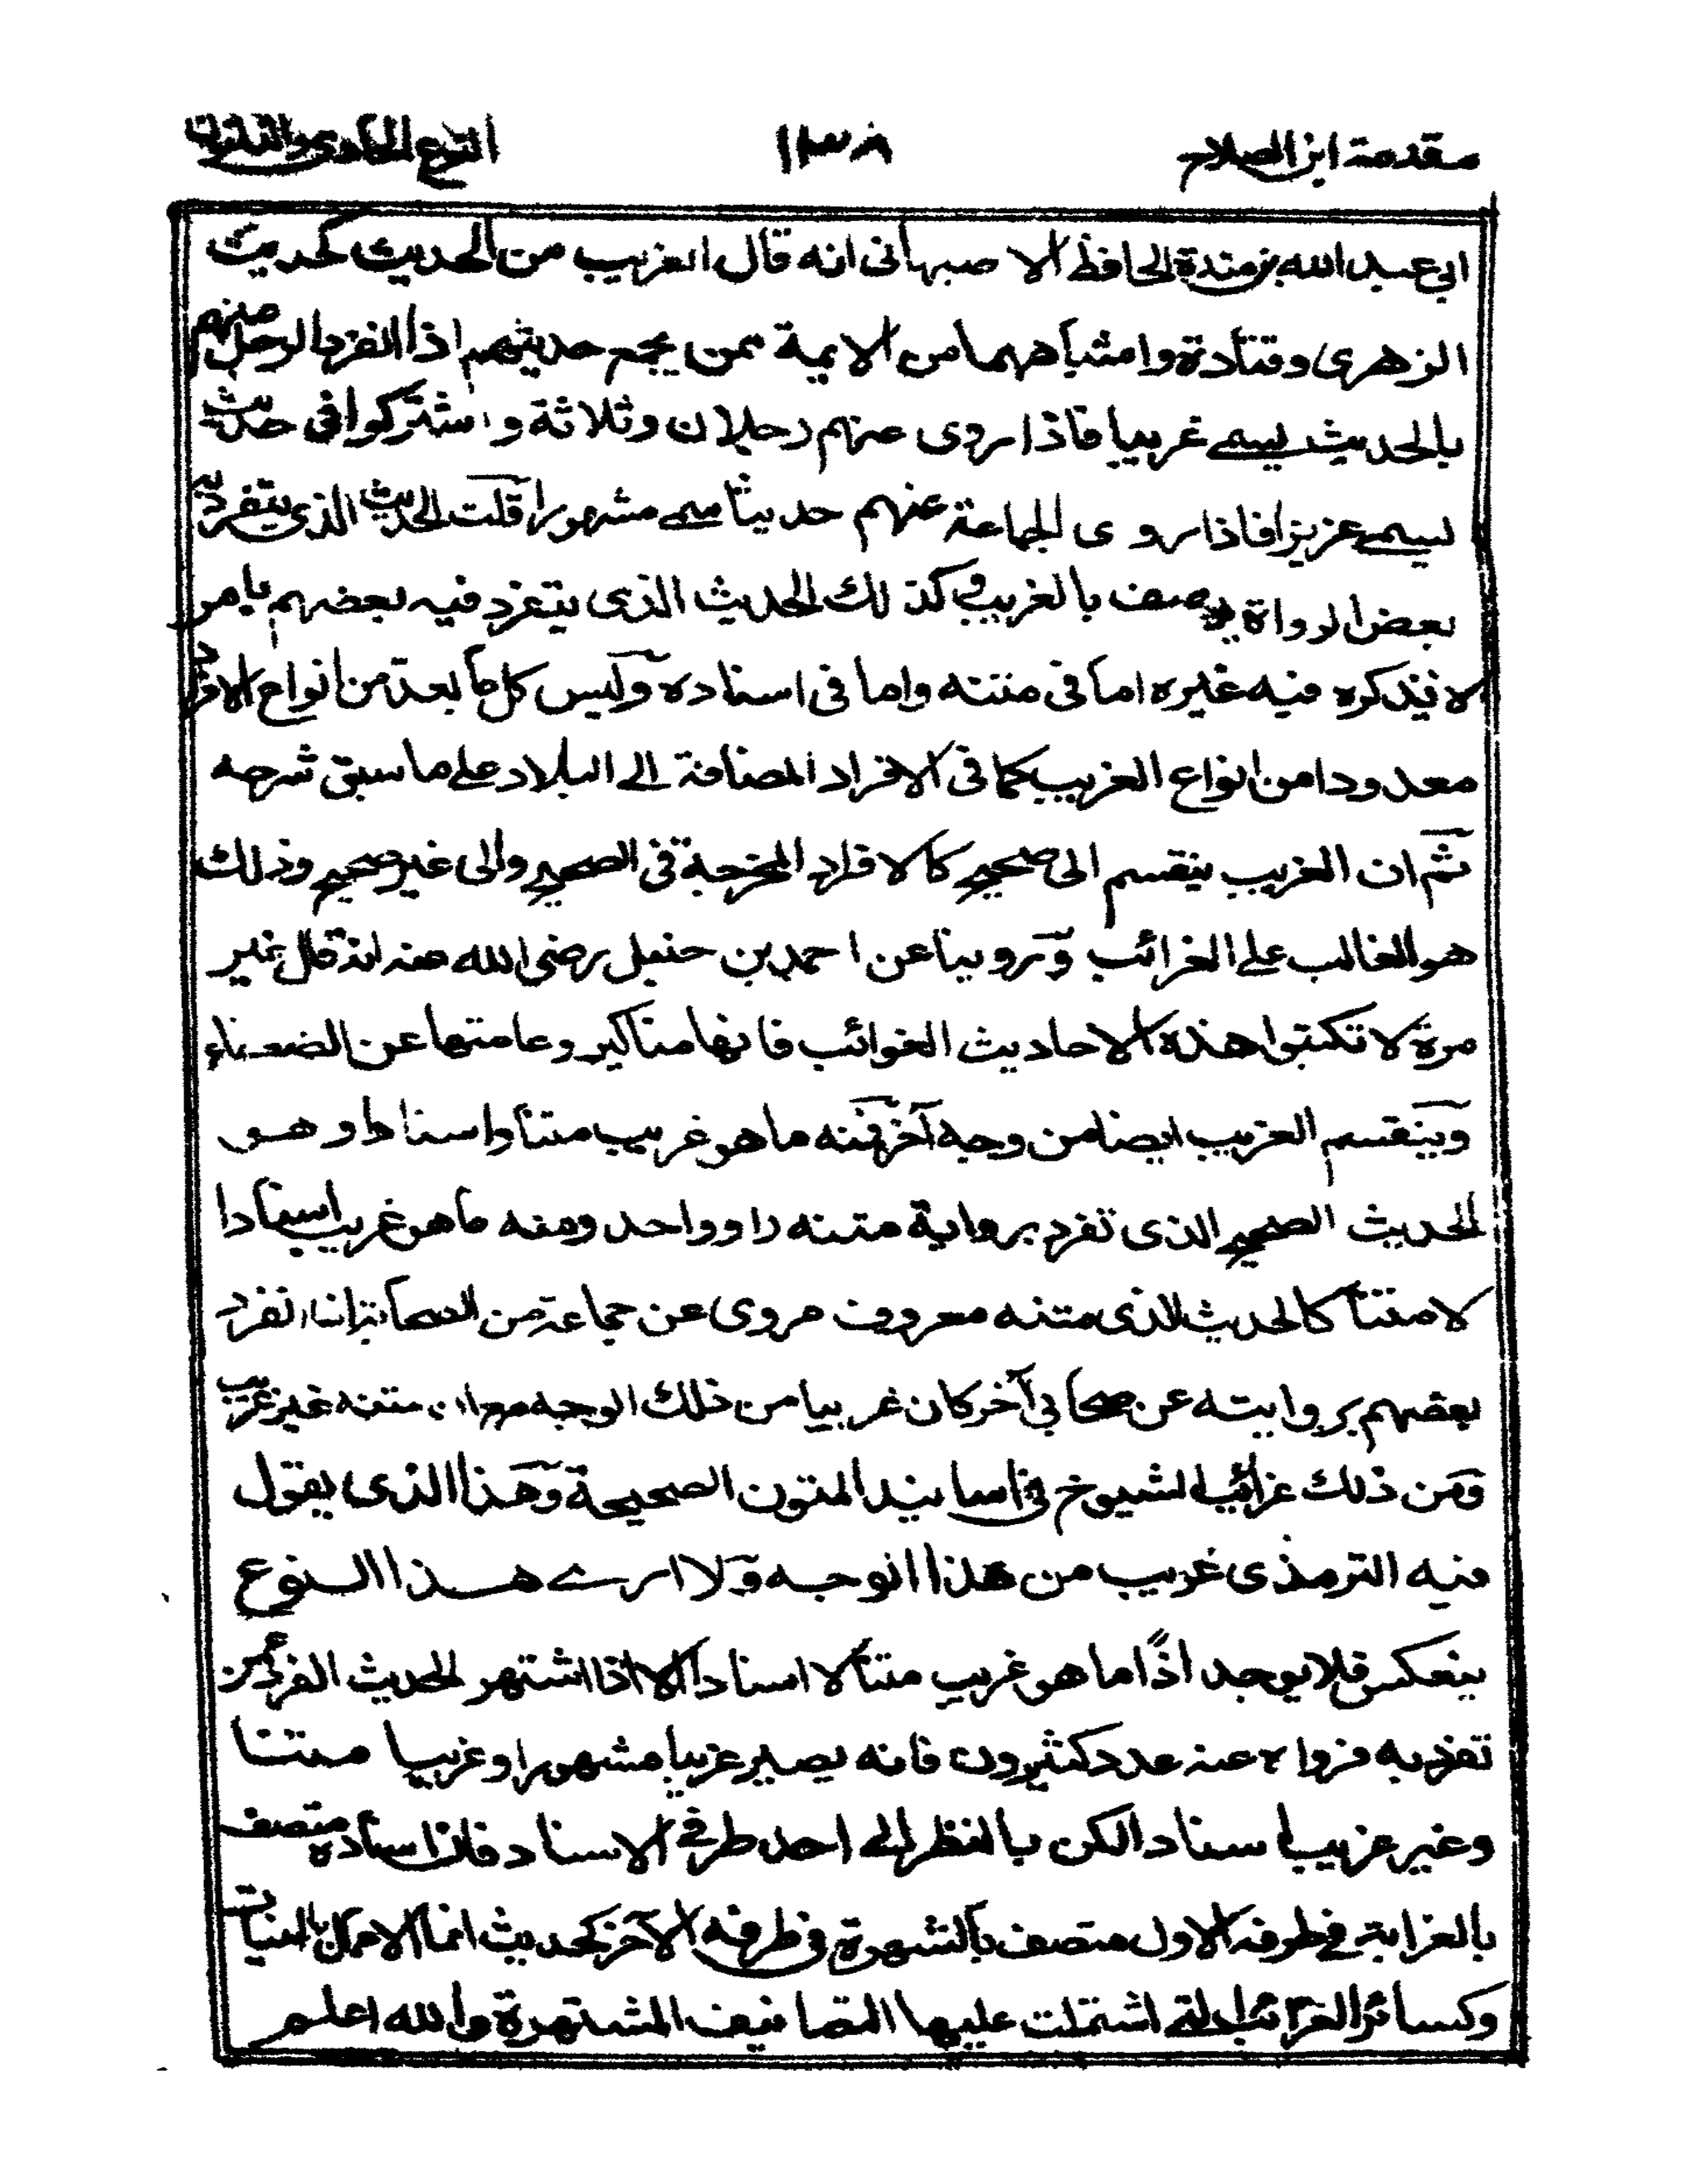 مقدمة ابن الصلاح ١٣٨ النوع الحادي والثلاثون
ابي عبد الله بن مندة الحافظ الاصبهانى انه قال الغريب من الحديث كحديث
الزهرى وقتادة وامثباههما من الايمة ممن يجمع حديثهم اذا انفرد الرجل منهم
بالحديث يسمے غريبا فاذا روى عنهم رجلان وثلاثة واشتركوا فى حديث
يسمے عزيزا فاذا روى الجماعة عنهم حديثا سمے مشهورا قلت الحديث الذى يتفرد به
بعض الرواة يوصف بالغريب وكذلك الحديث الذى يتفرد فيه بعضهم بامر
لا يذكره فيه غيره اما فى متنه واما فى اسناده وليس كل ما يعد من انواع الافراد
معدودا من انواع الغريب كما فى الافراد المضافة الے البلاد علے ما سبق شرحه
ثم ان الغريب ينقسم الى صحيح كالافراد المخرجة فى الصحيح والى غير صحيح وذلك
هو الغالب علے الغرائب وروينا عن احمد بن حنبل رضى الله عنه انه قال غير
مرة لا تكتبوا هذه الاحاديث الغرائب فانها مناكير وعامتها عن الضعفاء
وينقسم الغريب ايضا من وجه آخر فمنه ما هو غريب متنا واسنادا وهو
الحديث الصحيح الذى تفرد برواية متنه راو واحد ومنه ما هو غريب اسنادا
لا متنا كالحديث الذى متنه معروف مروى عن جماعة من الصحابة اذا انفرد
بعضهم بروايته عن صحابي آخر كان غريبا من ذلك الوجه مع ان متنه غير غريب
ومن ذلك غرائب الشيوخ فى اسانيد المتون الصحيحة وهذا الذى يقول
فيه الترمذى غريب من هذا الوجه ولا ارے هذا النوع
ينعكس فلا يوجد اذًا ما هو غريب متنا لا اسنادا الا اذا اشتهر الحديث الفرد عمن
تفرد به فرواه عنه عدد كثيرون فانه يصير غريبا مشهورا وغريبا متنا
وغير غريب اسنادا لكن بالنظر الے احد طرفے الاسناد فان اسناده متصف
بالغرابة فے طرفه الاول متصف بالشهرة فى طرفه الآخر كحديث انما الاعمال بالنيات
وكسائر الغرائب التے اشتملت عليها التصانيف المشتهرة والله اعلم